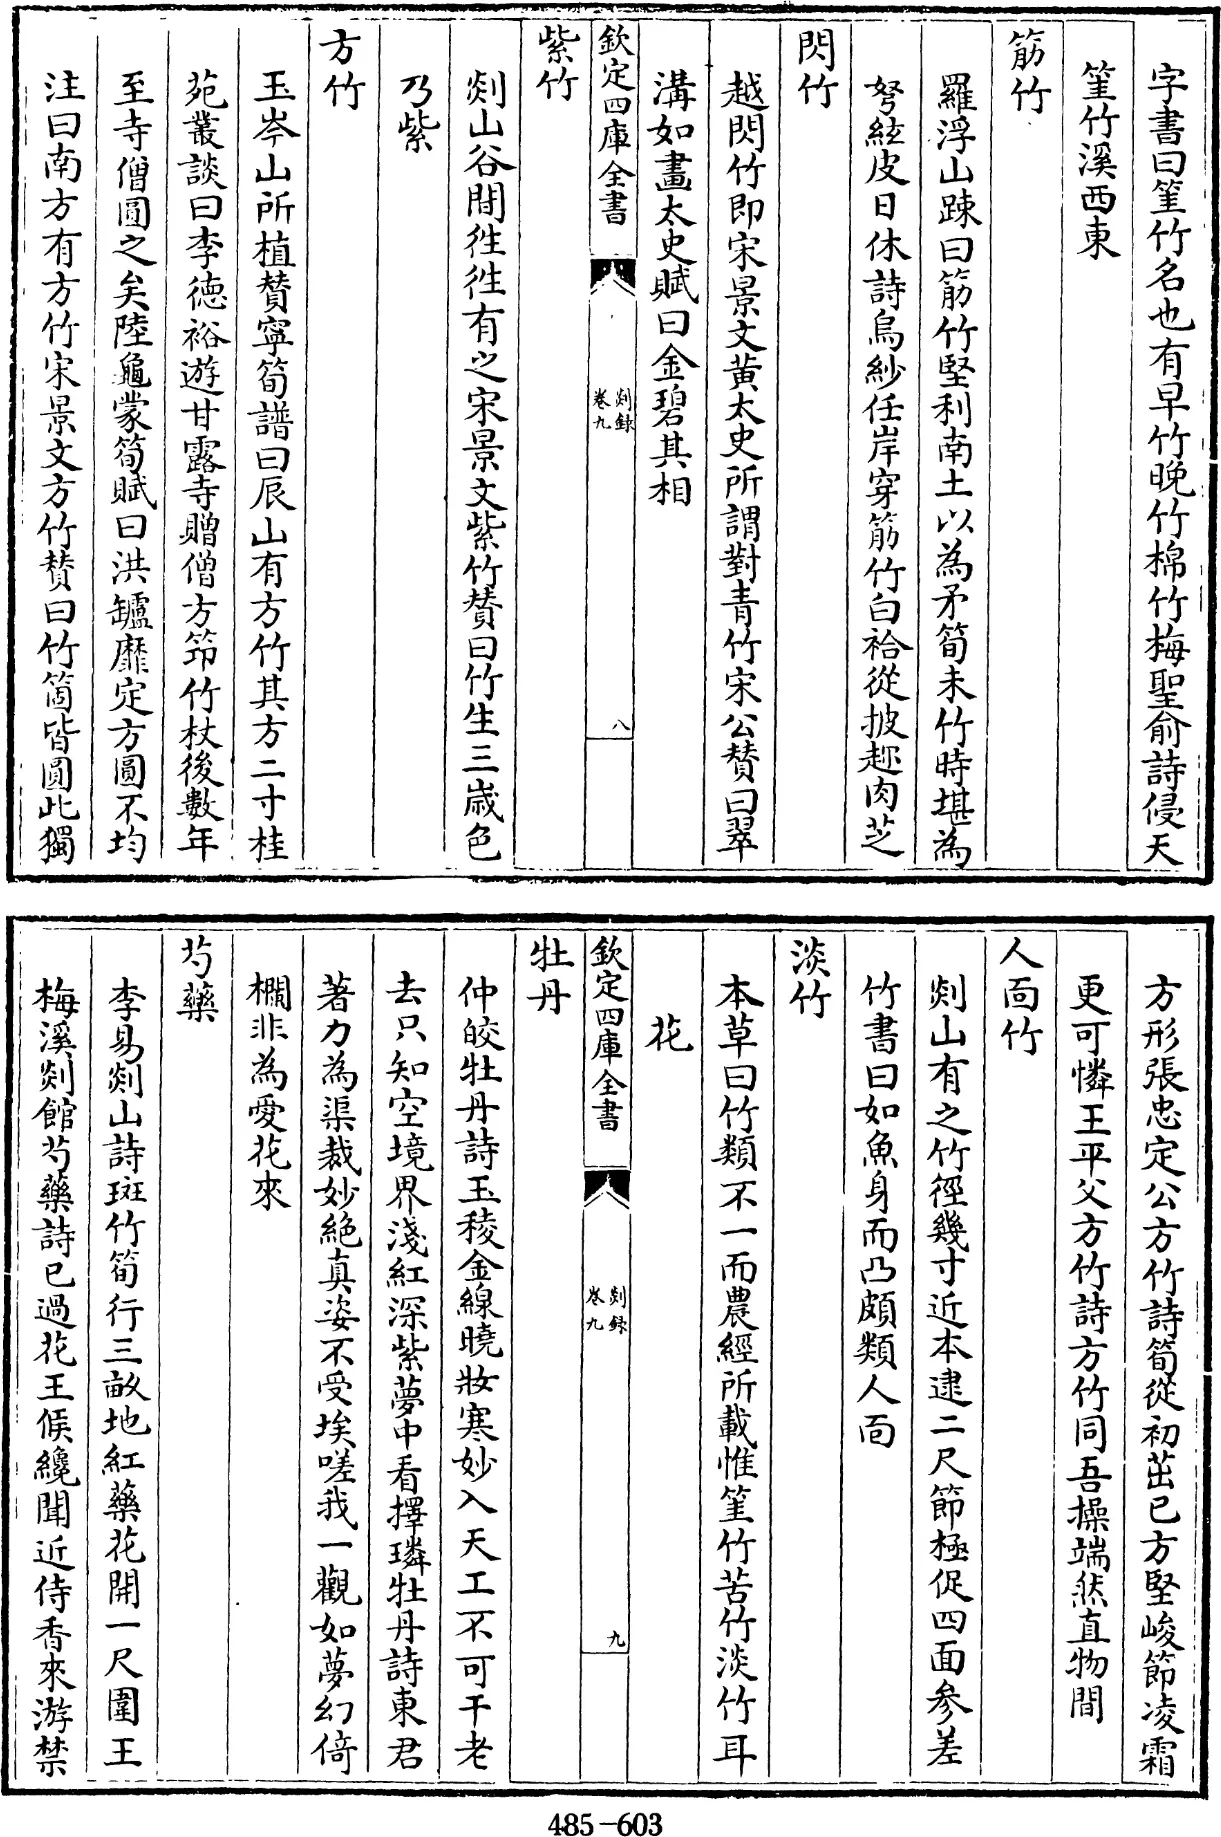 字書曰筀竹名也有早竹晚竹棉竹梅聖俞詩侵天
筀竹溪西東
筋竹
羅浮山疎曰筋竹堅利南土以為矛筍未竹時堪為
弩絃皮日休詩烏紗任岸穿筋竹白袷從披趂肉芝
閃竹
越閃竹即宋景文黄太史所謂對青竹宋公賛曰翠
溝如畫太史賦曰金碧其相
欽定四庫全書
剡録
卷九
八
紫竹
剡山谷間徃徃有之宋景文紫竹賛曰竹生三歳色
乃紫
方竹
玉岑山所植賛寧筍譜曰辰山有方竹其方二寸桂
苑叢談曰李徳裕遊甘露寺贈僧方笻竹杖後數年
至寺僧圓之矣陸龜蒙筍賦曰洪鑪靡定方圓不均
注曰南方有方竹宋景文方竹賛曰竹箇皆圓此獨
方形張忠定公方竹詩筍從初茁已方堅峻節凌霜
更可憐王平父方竹詩方竹同吾操端然直物間
人面竹
剡山有之竹徑幾寸近本逮二尺節極促四面參差
竹書曰如魚身而凸頗類人面
淡竹
本草曰竹類不一而農經所載惟筀竹苦竹淡竹耳
花
欽定四庫全書
剡録
卷九
九
牡丹
仲皎牡丹詩玉稜金線曉妝寒妙入天工不可干老
去只知空境界淺紅深紫夢中看擇璘牡丹詩東君
著力為渠裁妙絶真姿不受埃嗟我一觀如夢幻倚
欄非為愛花來
芍藥
李易剡山詩斑竹筍行三畝地紅藥花開一尺圍王
梅溪剡館芍藥詩已過花王候纔聞近侍香來游禁
485-603